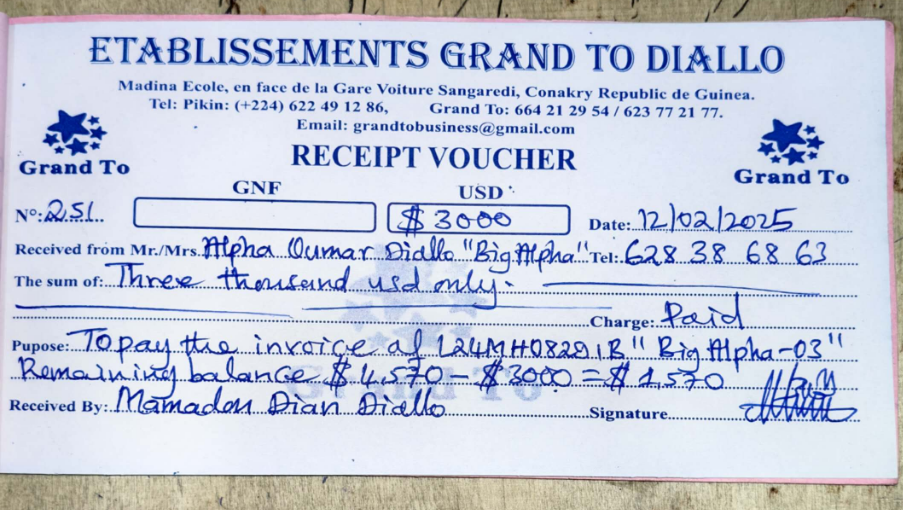 ETABLISSEMENTS GRAND TO DIALLO
Madina Ecole, en face de la Gare Voiture Sangaredi, Conakry Republic de Guinea.
Tel: Pikin: (+224) 622 49 12 86, Grand To: 664 21 29 54 / 623 77 21 77.
Email: grandtobusiness@gmail.com
Grand To
RECEIPT VOUCHER
Grand To
GNF USD
N°: 251 $ 3000 Date: 12/02/2025
Received from Mr./Mrs. Alpha Oumar Diallo "Big Alpha" Tel: 628 38 68 63
The sum of: Three thousand usd only.
Charge: Paid
Pupose: To pay the invoice of "Big Alpha-03"
Remaining balance $ 4,570 - $ 3000 = $ 1,570
Received By: Mamadou Dian Diallo Signature